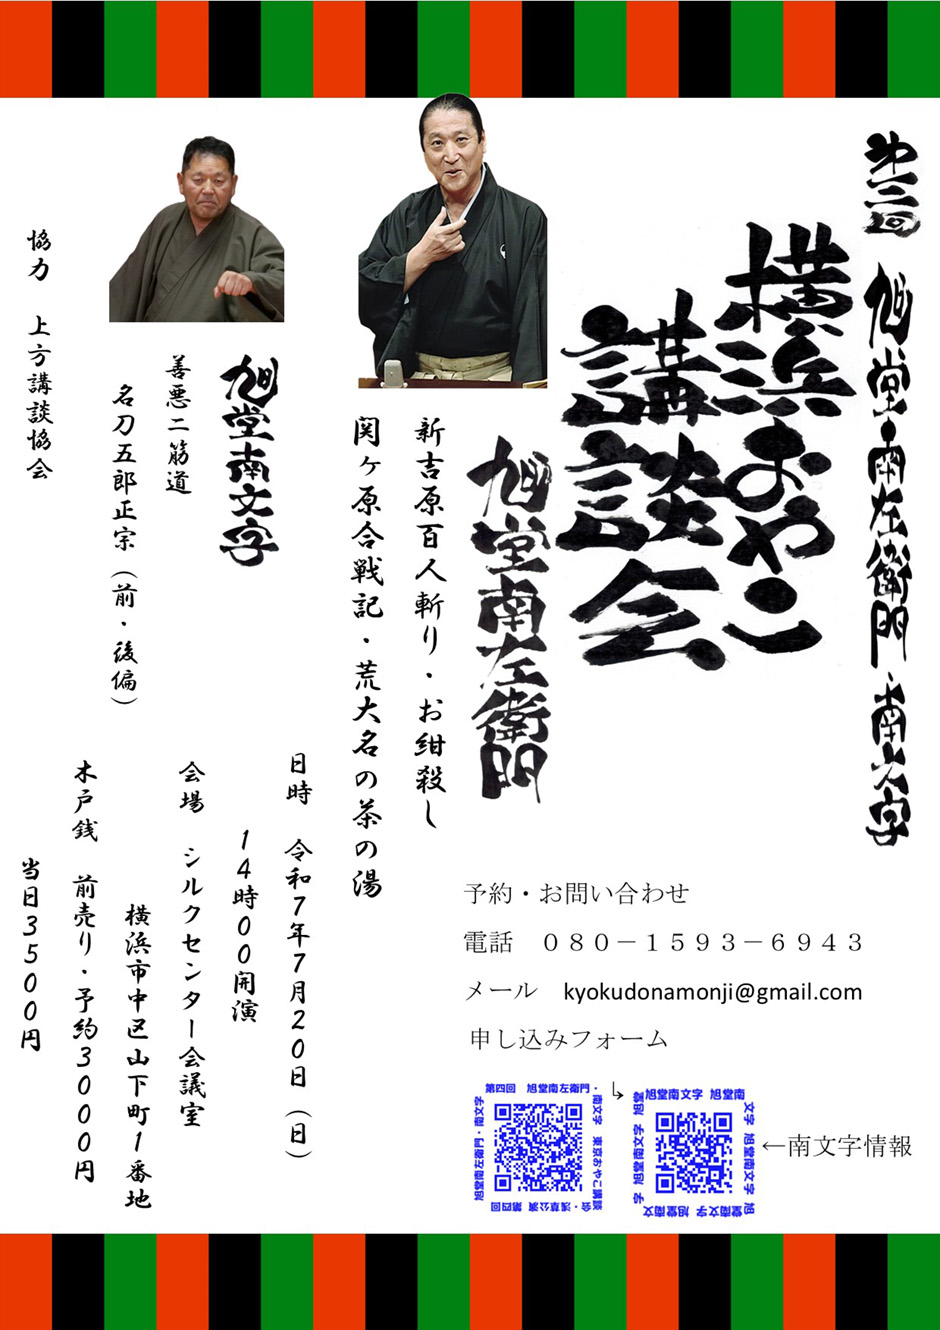 第二回 旭堂南左衛門・南文字
横浜おやこ
講談会
旭堂南左衛門
新吉原百人斬り・お紺殺し
関ヶ原合戦記・荒大名の茶の湯
旭堂南文字
善悪二筋道
名刀五郎正宗（前・後偏）
協力 上方講談協会
日時 令和7年7月20日（日）
14時00開演
会場 シルクセンター会議室
横浜市中区山下町1番地
木戸銭 前売り・予約3000円
当日3500円
予約・お問い合わせ
電話 ０８０－１５９３－６９４３
メール kyokudonamonji@gmail.com
申し込みフォーム
第四回 旭堂南左衛門・南文字 東京おやこ講談会・浅草公演 第四回 旭堂南左衛門・南文字
旭堂南文字 旭堂南文字 旭堂南文字 旭堂南文字 旭堂南文字 旭堂南文字
←南文字情報